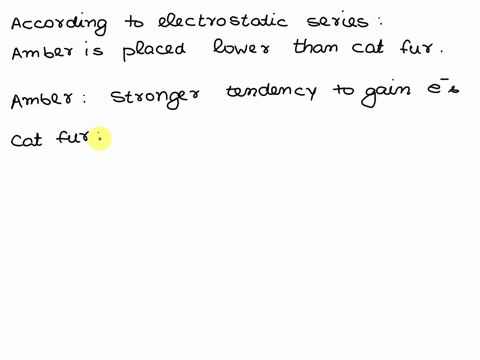 According to electrostatic series:
Amber is placed lower than cat fur.
Amber: stronger tendency to gain e⁻s
Cat fur: